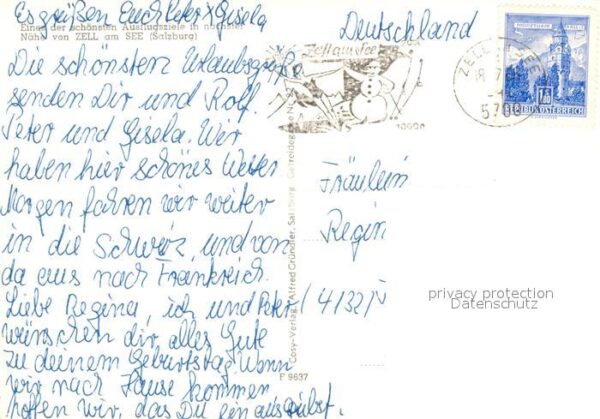 Es grüßen Euch Peter + Gisela
Eines der schönsten Ausflugsziele in nächster
Nähe von ZELL am SEE (Salzburg)
Die schönsten Urlaubsgrüße
senden Dir und Rolf
Peter und Gisela. Wir
haben hier schönes Wetter
Morgen fahren wir weiter
in die Schweiz, und von
da aus nach Frankreich.
Liebe Regina, ich und Peter
wünschen dir alles Gute
zu deinem Geburtstag wenn
wir nach Hause kommen
hoffen wir, das Du ein ausgibst.
Cosy-Verlag Alfred Gründler, Salzburg, Getreidegasse
F 9637
Zell am See
ZELL
5700
1.80
REPUBLIK ÖSTERREICH
Deutschland
Fräulein
Regin
14132 IV
privacy protection
Datenschutz